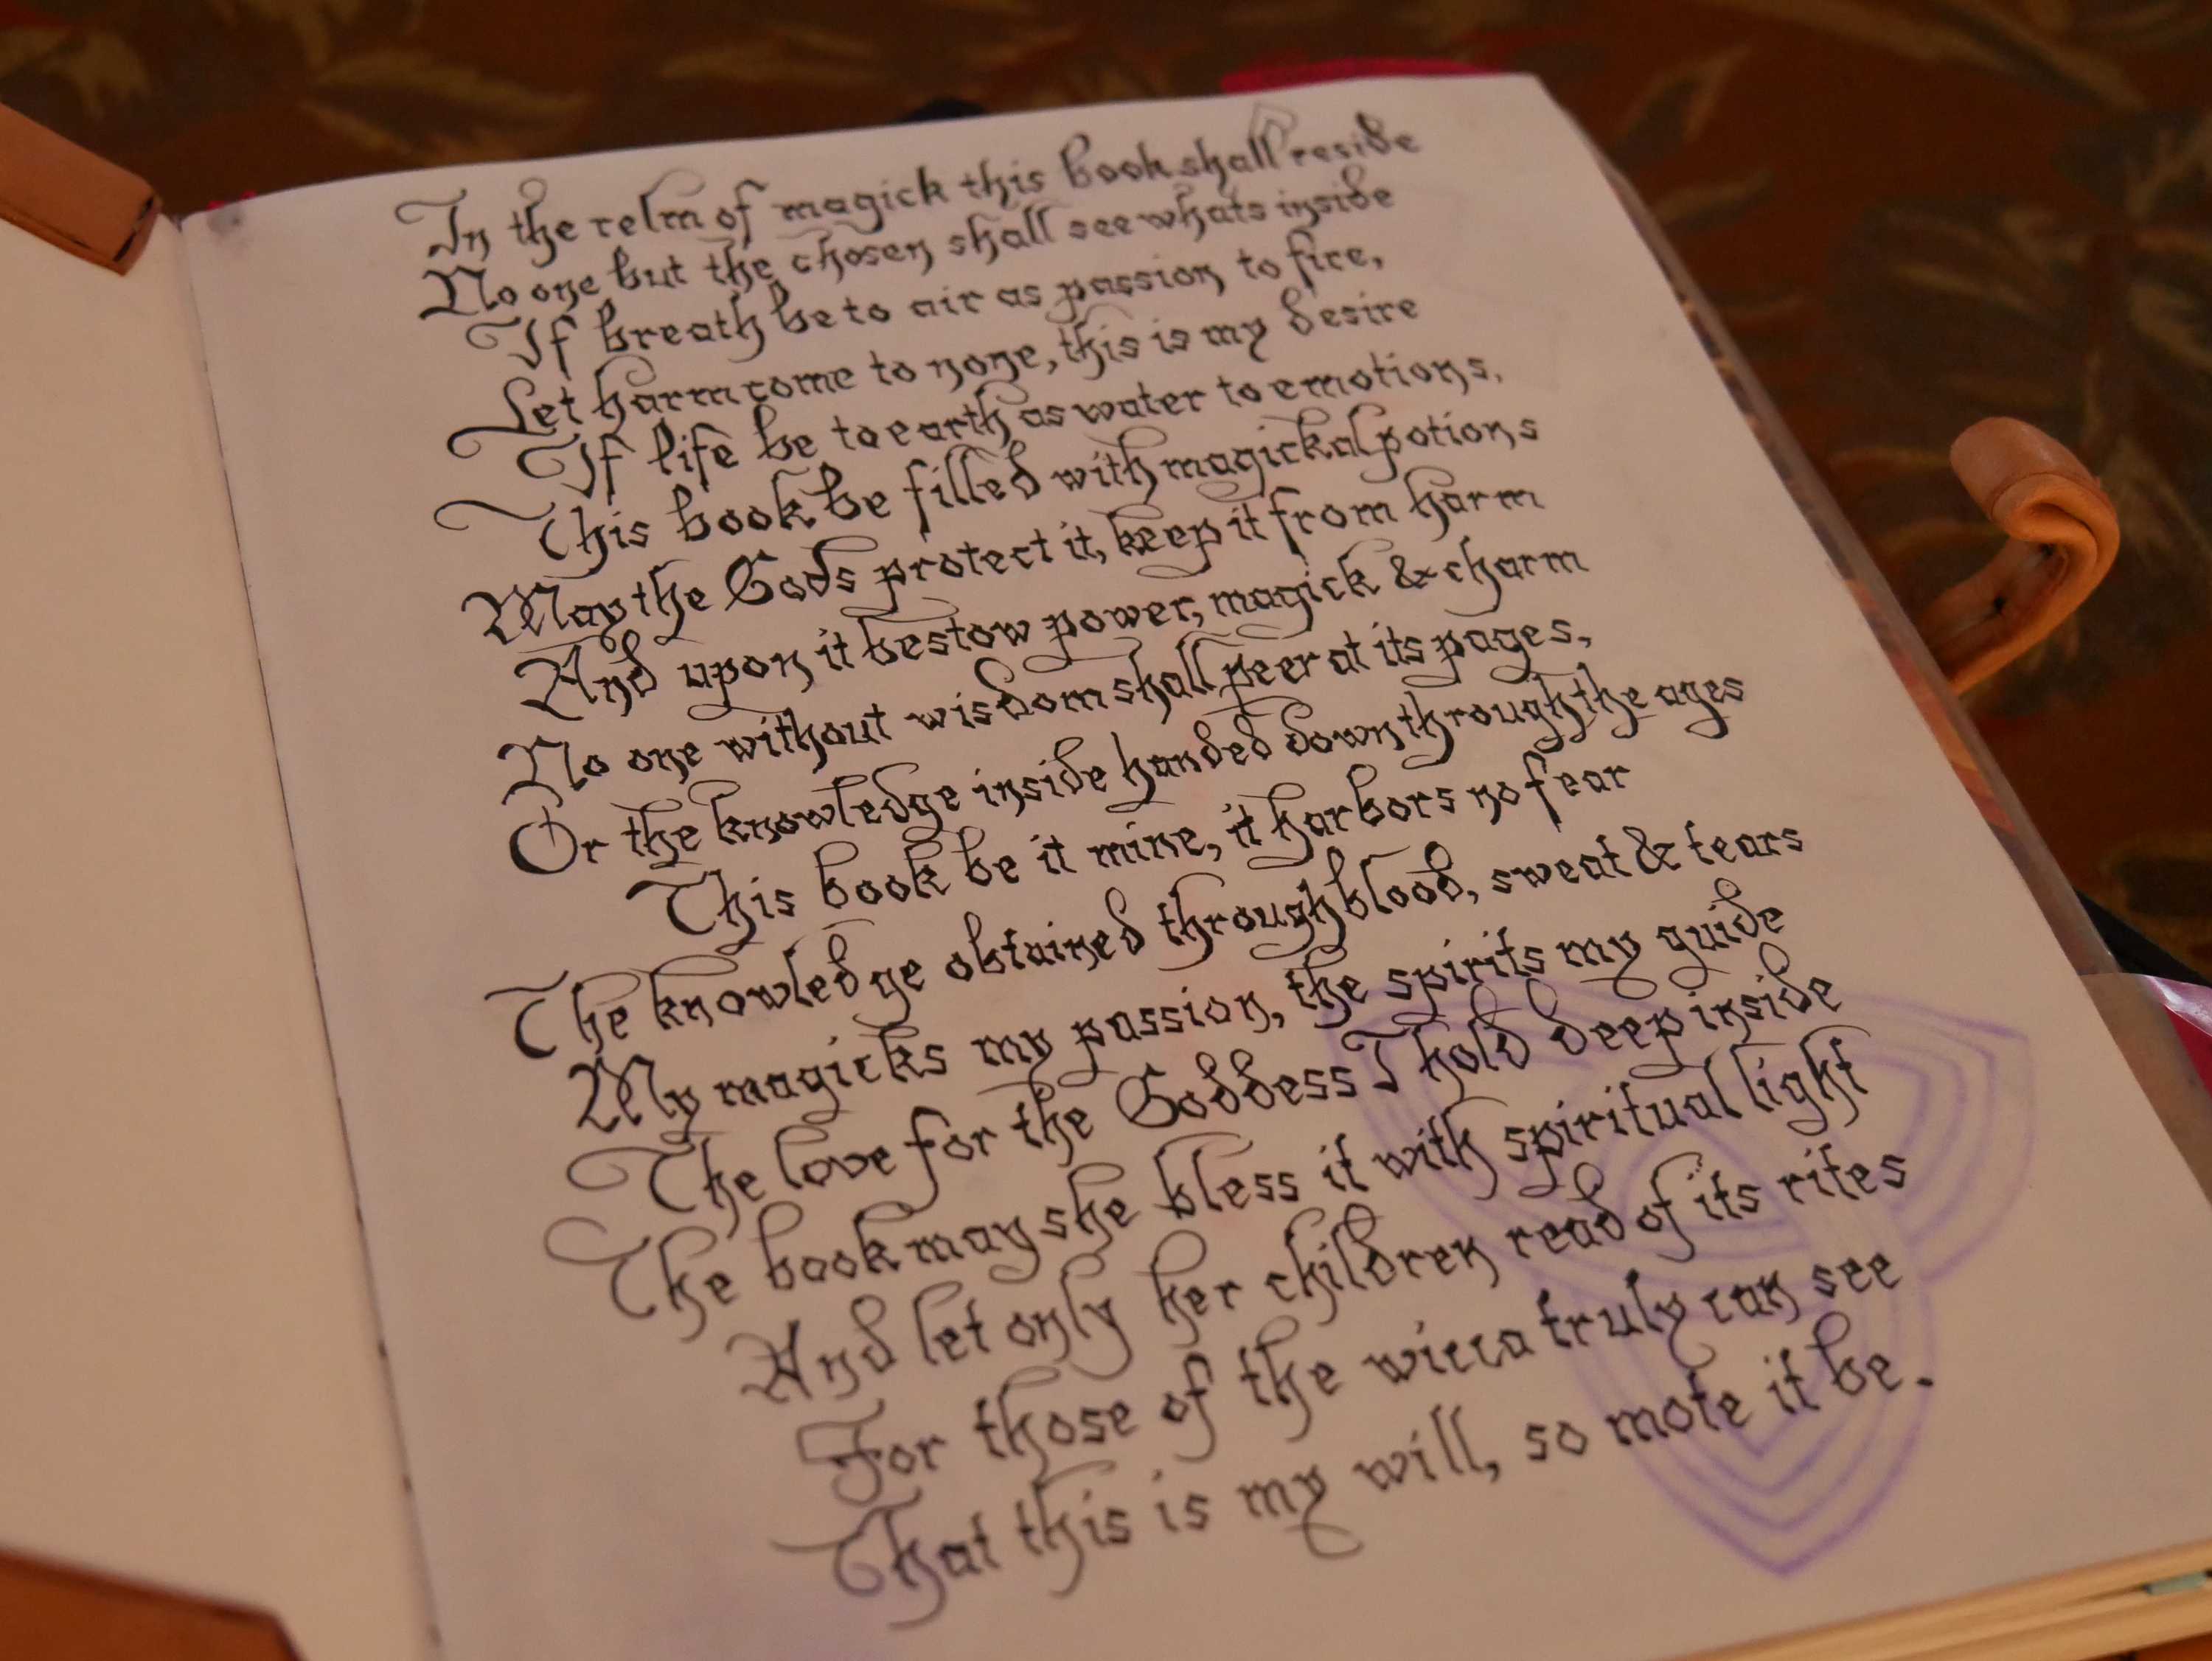 In the relm of magick this book shall reside
No one but the chosen shall see whats inside
If breath be to air as passion to fire,
Let harm come to none, this is my desire
If life be to earth as water to emotions,
This book be filled with magickal potions
May the Gods protect it, keep it from harm
And upon it bestow power, magick & charm
No one without wisdom shall peer at its pages,
Or the knowledge inside handed down through the ages
This book be it mine, it harbors no fear
The knowledge obtained through blood, sweat & tears
My magicks my passion, the spirits my guide
The love for the Goddess I hold deep inside
The book may she bless it with spiritual light
And let only her children read of its rites
For those of the wicca truly can see
That this is my will, so mote it be.